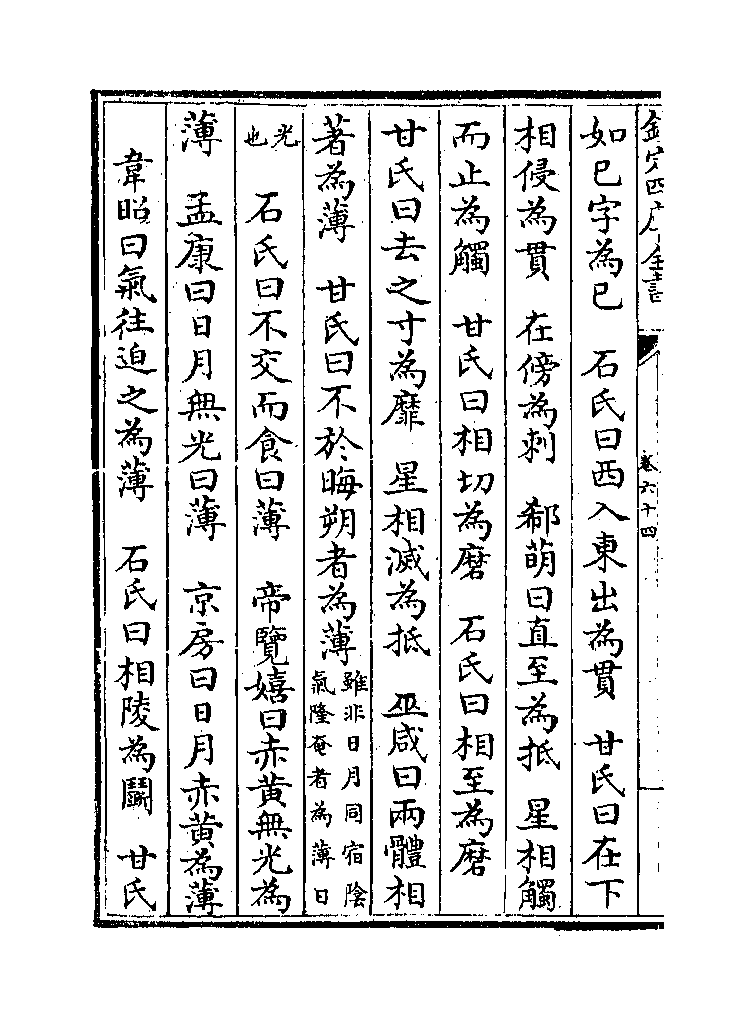 欽定四庫全書
卷六十四
如巳字為巳　石氏曰西入東出為貫　甘氏曰在下
相侵為貫　在傍為刺　郗萌曰直至為抵　星相觸
而止為觸　甘氏曰相切為磨　石氏曰相至為磨
甘氏曰去之寸為靡　星相滅為抵　巫咸曰兩體相
著為薄　甘氏曰不於晦朔者為薄雖非日月同宿陰氣隆奄者為薄日
光也　石氏曰不交而食曰薄　帝覽嬉曰赤黄無光為
薄　孟康曰日月無光曰薄　京房曰日月赤黄為薄
韋昭曰氣往迫之為薄　石氏曰相陵為鬭　甘氏